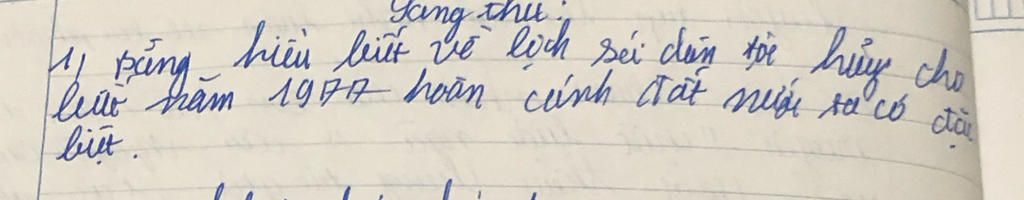 Sang thu:
1, Bằng hiểu biết về lịch sử dân tộc hãy cho
biết năm 1977 hoàn cảnh đất nước ta có đặc
biệt.